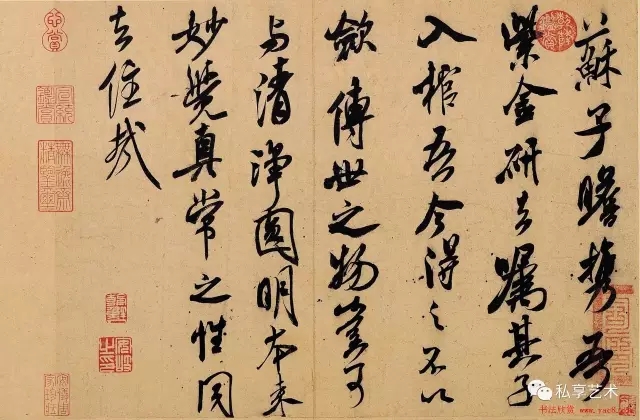 蘇子瞻攜吾
紫金研去嘱其子
入棺吾今得之不以
斂傳世之物豈可
与清淨圓明本来
妙覺真常之性同
去住哉
私享艺术
书法欣赏